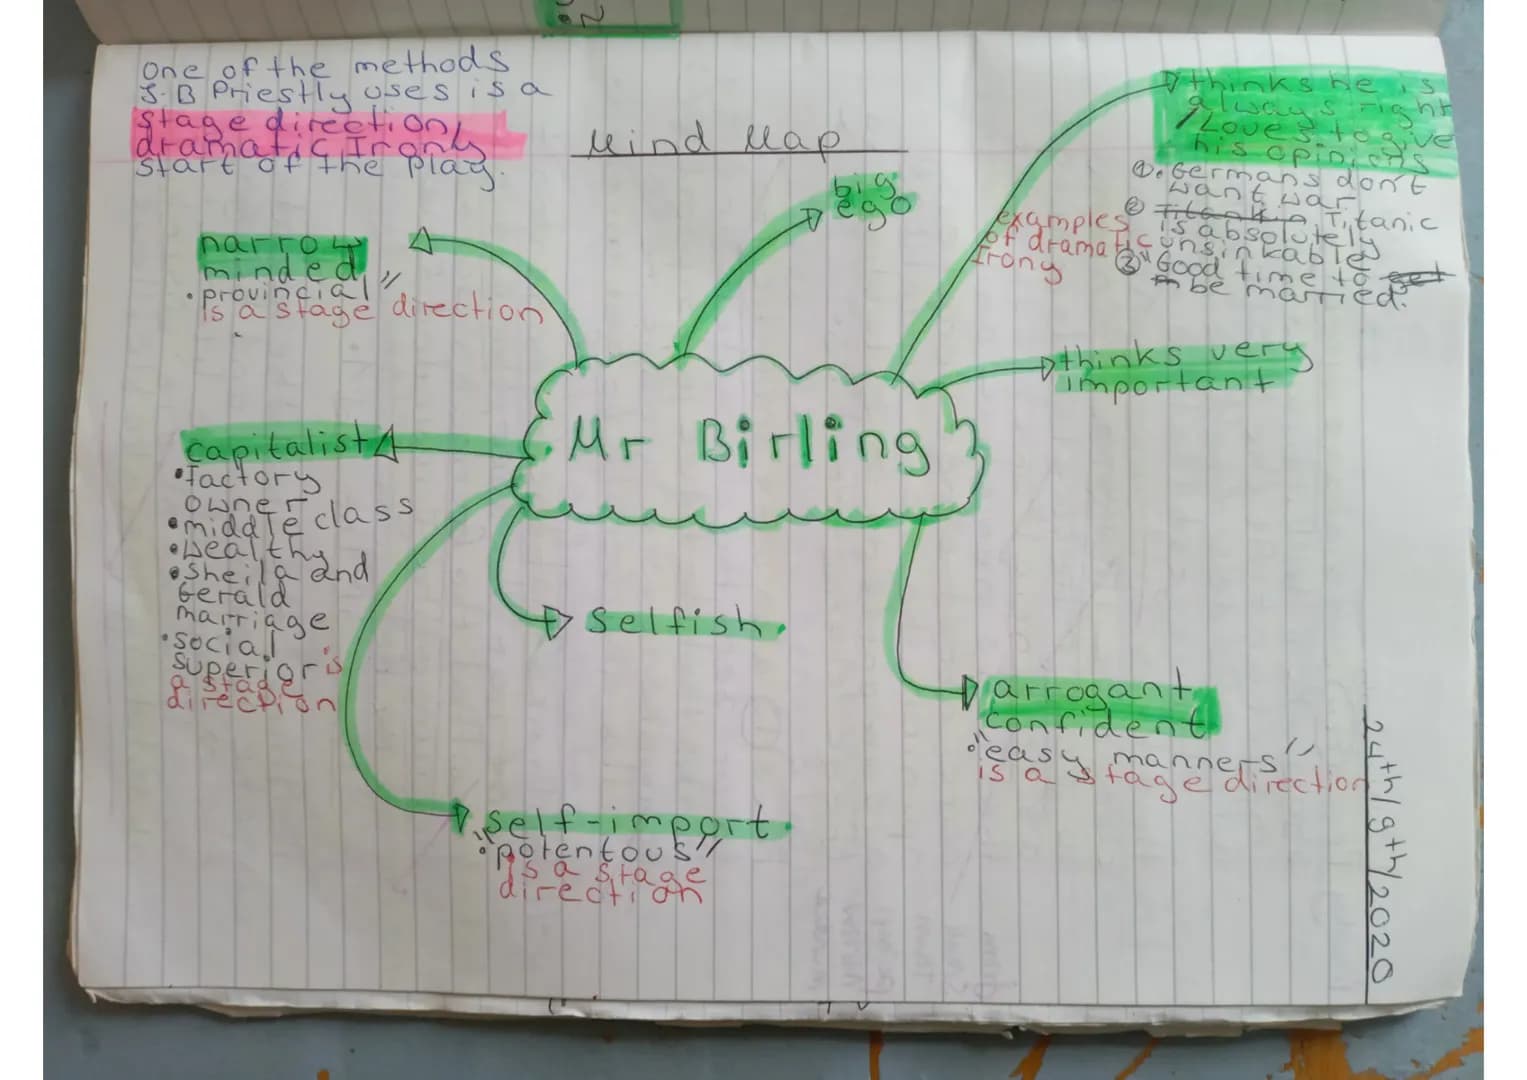 One of the methods
J.B Priestly uses is a
stage direction,
dramatic Irony
start of the play.
Mind Map
big
ego
thinks he is
always right
/Loves to give
his opinions
①. Germans don't
want war
② Titanic
is absolutely
unsinkable
③" Good time to
be married."
examples
of dramatic
Irony
narrow
minded
• provincial"
is a stage direction
thinks very
important
Mr Birling
capitalist
• factory
owner
• middle class
• wealthy
• Sheila and
Gerald
marriage
• social
superior is
a stage
direction
selfish.
arrogant
confident
• "easy manners"
is a stage direction
self-import.
• "potentous"
is a stage
direction
24th/9th/2020